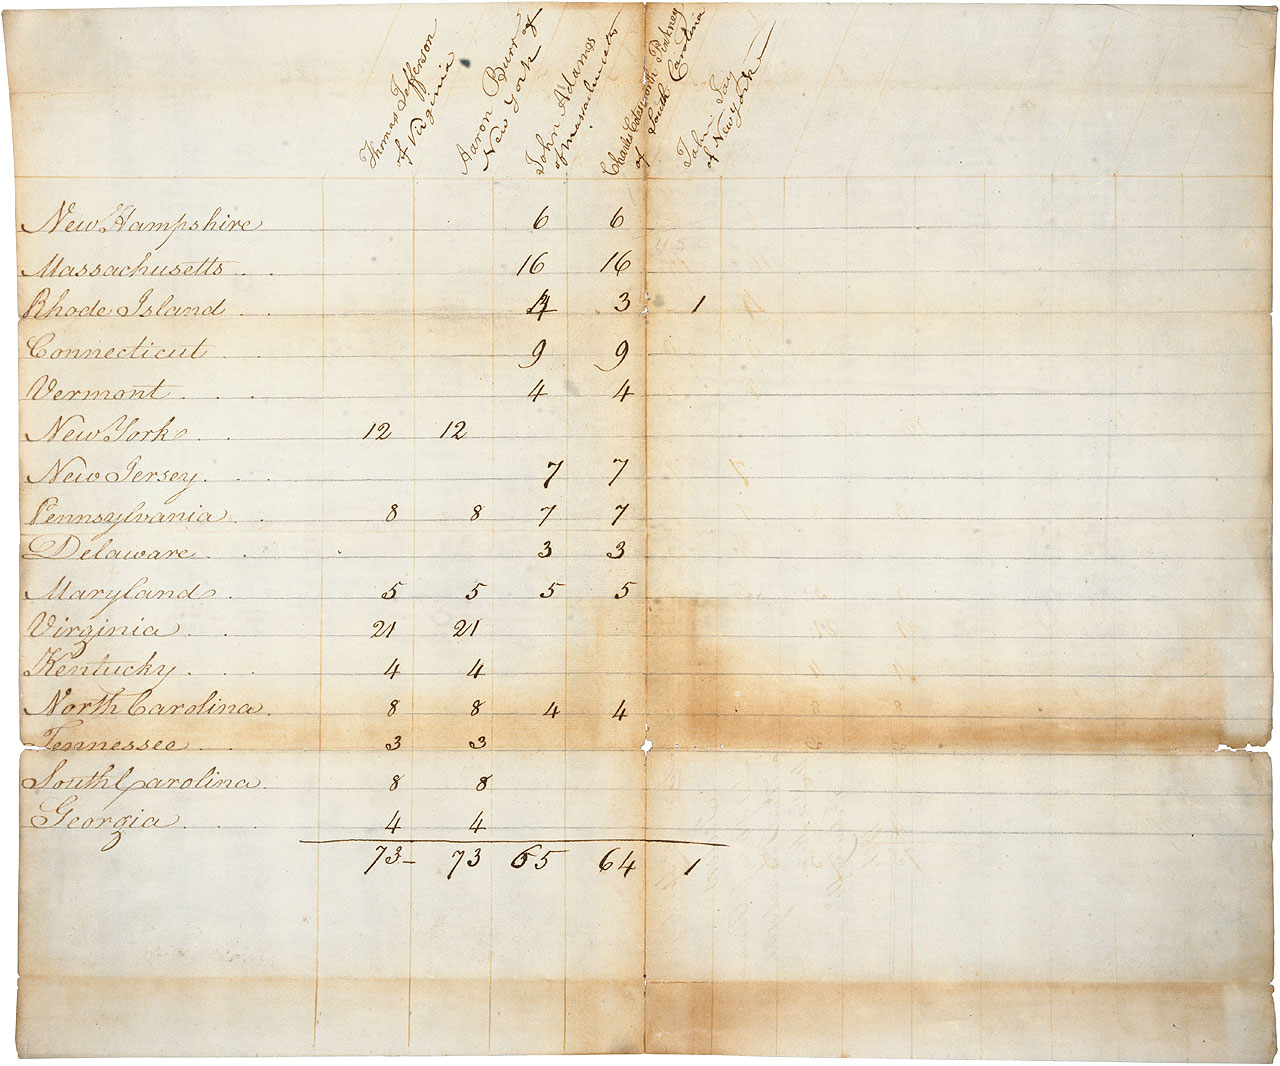 Thomas Jefferson
of Virginia
Aaron Burr of
New York
John Adams
of Massachusetts
Charles Cotesworth Pinckney
of South Carolina
John Jay
of New York
New Hampshire 6 6
Massachusetts . . 16 16
Rhode Island . . 4 3 1
Connecticut . . . 9 9
Vermont . . . . 4 4
New York . . 12 12
New Jersey . . . 7 7
Pennsylvania . . 8 8 7 7
Delaware . . 3 3
Maryland . 5 5 5 5
Virginia . . 21 21
Kentucky . . . 4 4
North Carolina . 8 8 4 4
Tennessee . . 3 3
South Carolina . 8 8
Georgia . . . . 4 4
73 – 73 65 64 1